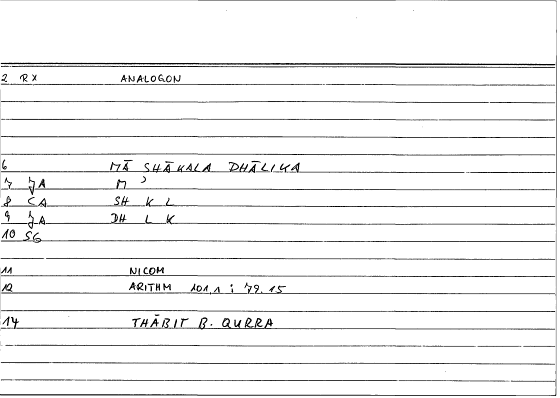 2 RX ANALOGON
6 MĀ SHĀKALA DHĀLIKA
7 JA M ʾ
8 CA SH K L
9 JA DH L K
10 SG
11 NICOM
12 ARITHM 101,1 ; 79.15
14 THĀBIT B. QURRA